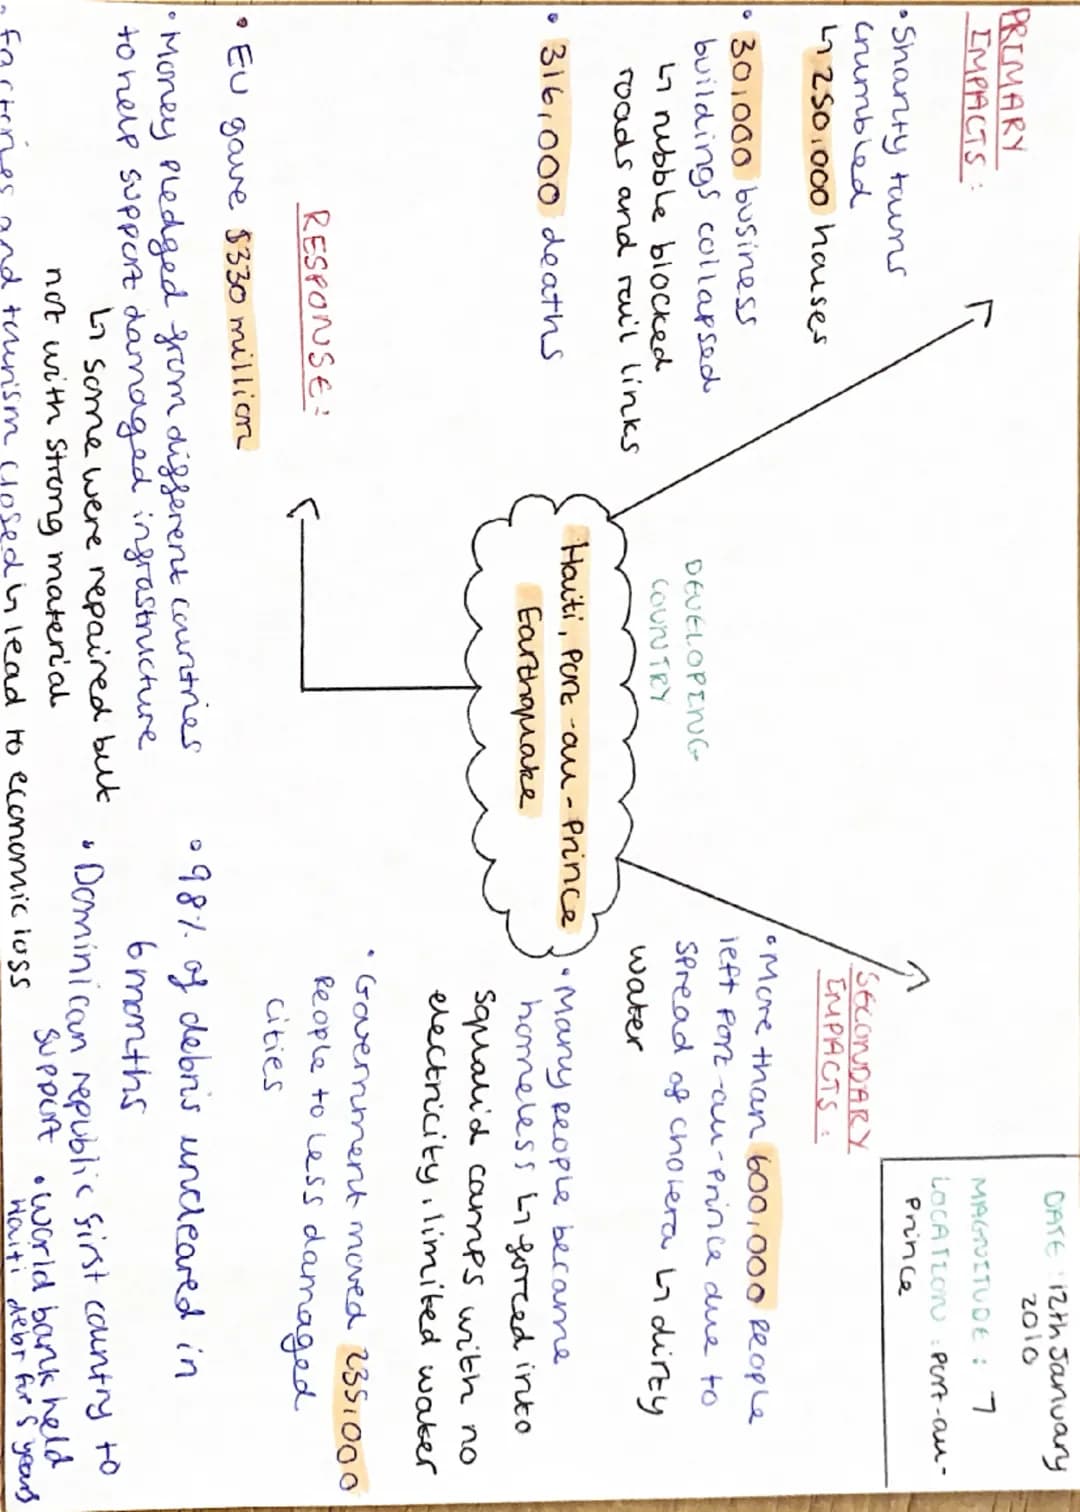 PRIMARY
IMPACTS:
• Shanty towns
crumbled
↳ 250,000 houses
• 30,000 business
buildings collapsed
↳ rubble blocked
roads and rail links
• 316,000 deaths
DEVELOPING
COUNTRY
Haiti, Port-au-Prince
Earthquake
DATE: 12th January
2010
MAGNITUDE: 7
LOCATION: Port-au-
Prince
SECONDARY
IMPACTS:
• More than 600,000 people
left Port-au-Prince due to
spread of cholera ↳ dirty
water
• Many people became
homeless ↳ forced into
squalid camps with no
electricity, limited water
• Government moved 235,000
people to less damaged
cities
RESPONSE:
• EU gave $330 million
• Money pledged from different countries
to help support damaged infrastructure
↳ some were repaired but
not with strong material
• factories and tourism closed ↳ lead to economic loss
• 98% of debris uncleared in
6 months
• Dominican republic first country to
support
• World bank held
Haiti debt for 5 years